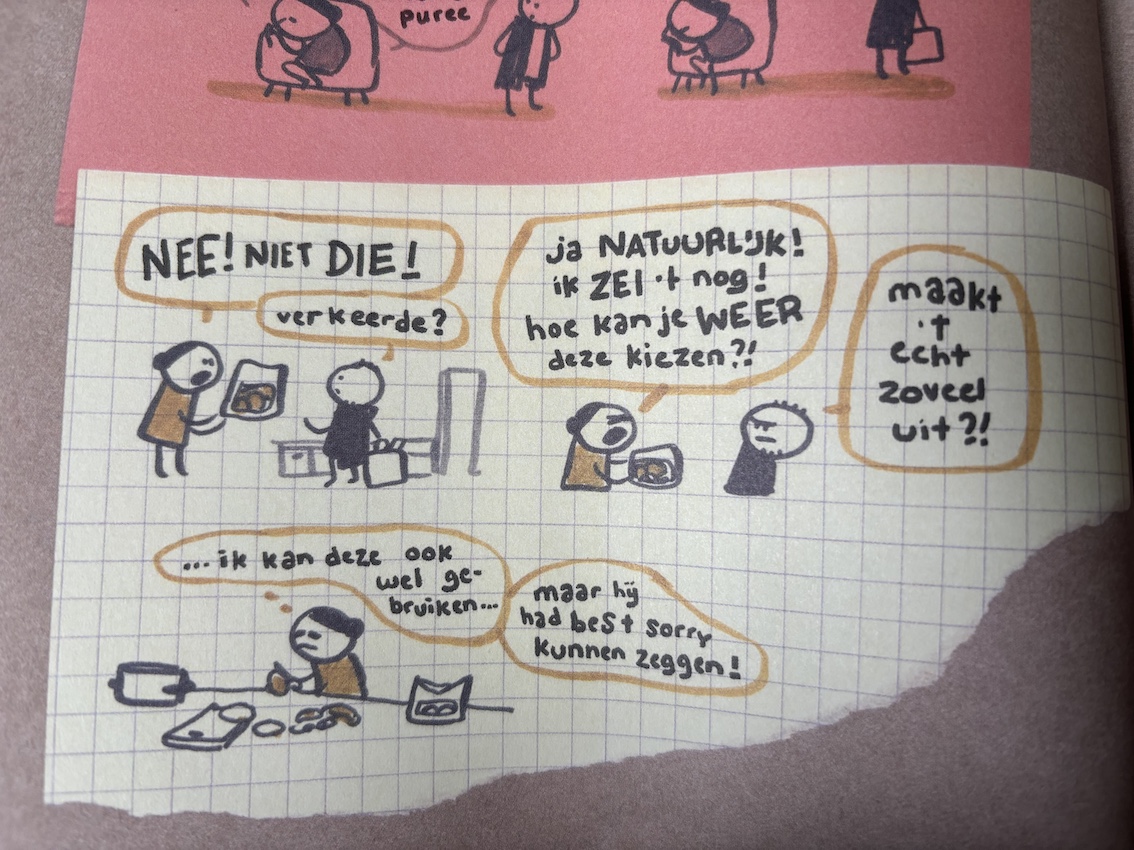 puree
NEE! NIET DIE!
verkeerde?
ja NATUURLIJK!
ik ZEI 't nog!
hoe kan je WEER
deze kiezen?!
maakt
't
echt
zoveel
uit?!
...ik kan deze ook
wel ge-
bruiken...
maar hij
had best sorry
kunnen zeggen!